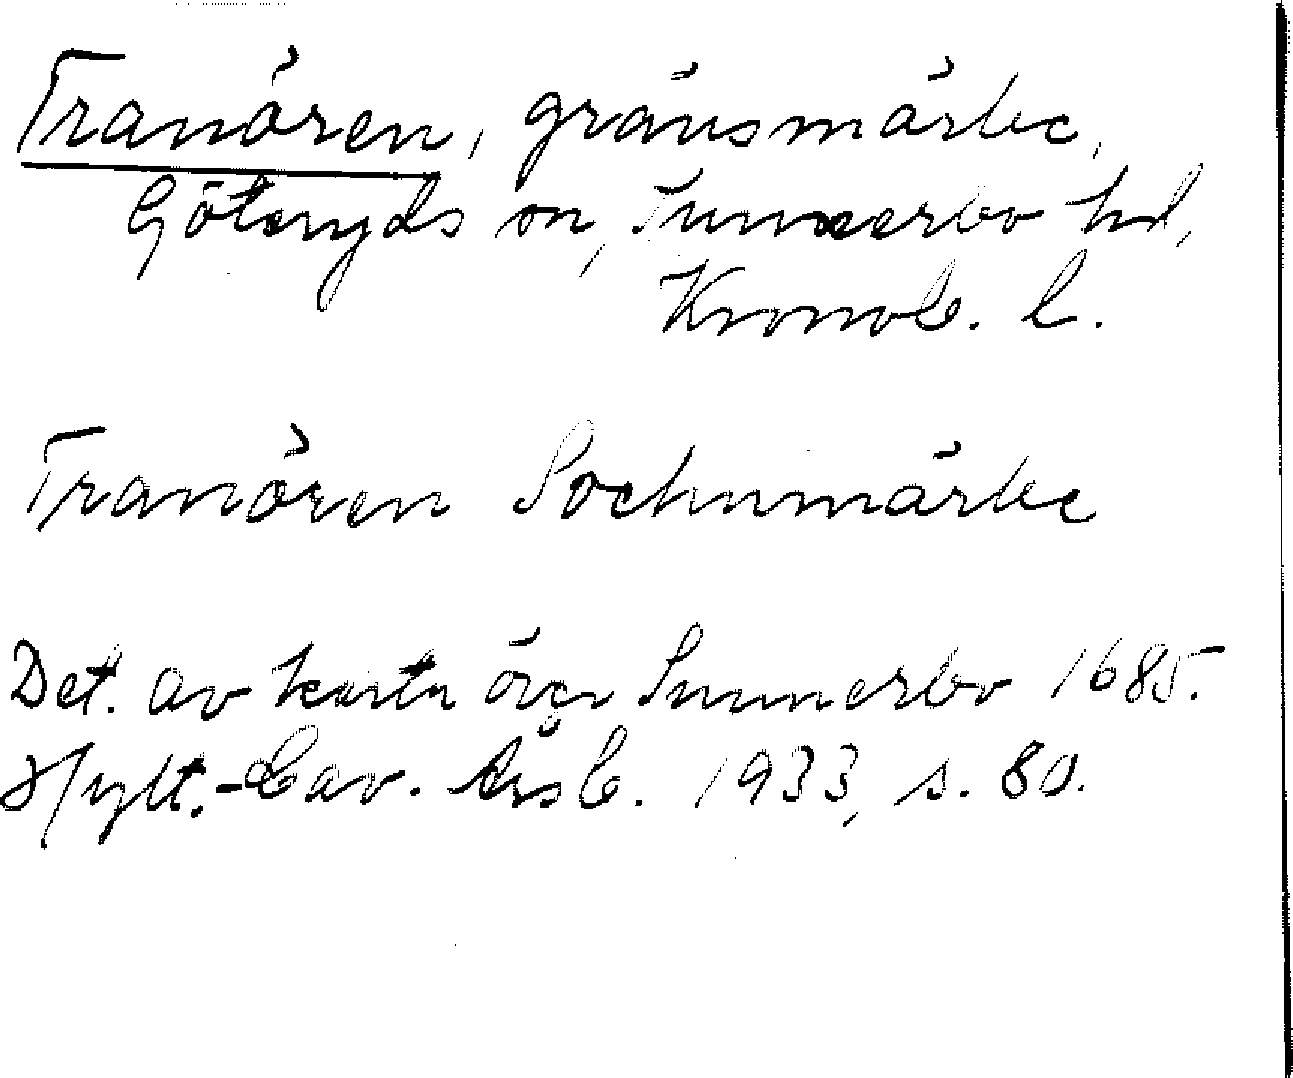 Tranören, gränsmärke,
Göteryds sn, Sunnerbo hd,
Kronob. l.
Tranören Sochnmärke
Det. av karta över Sunnerbo 1685.
Hylt.-Cav. Årsb. 1933, s. 80.